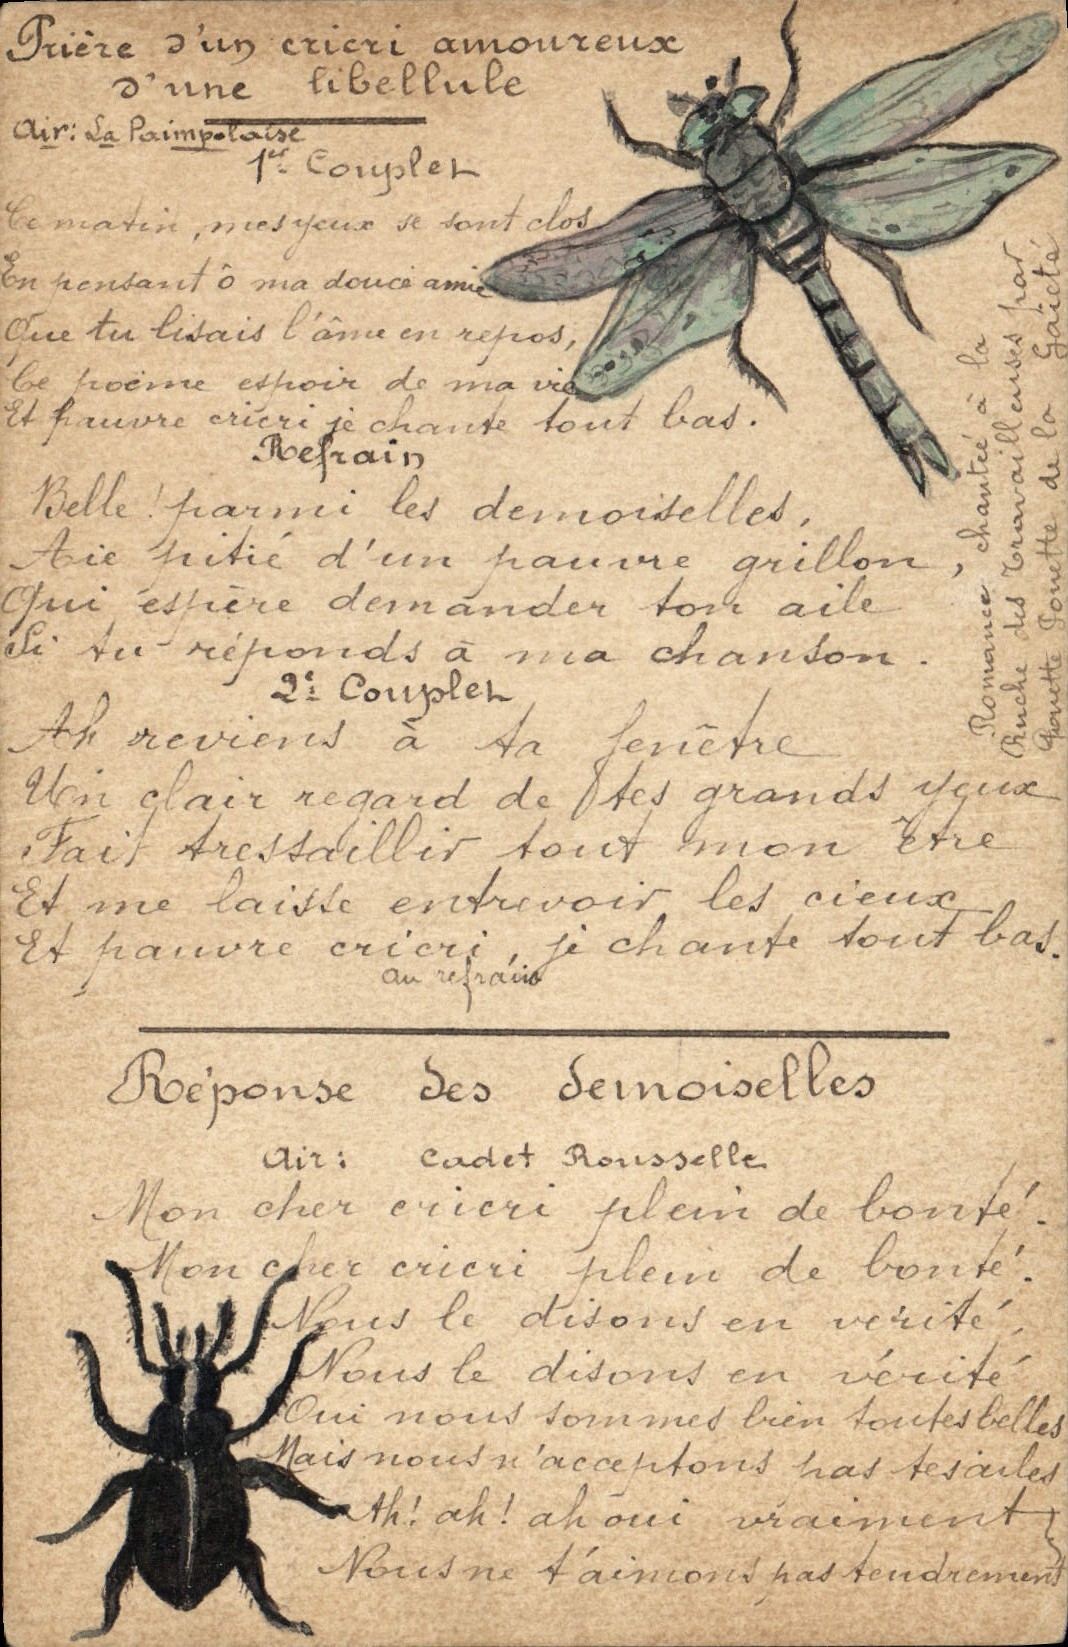 Prière d'un cricri amoureux
d'une libellule
Air: La Paimpolaise
1er Couplet
Ce matin, mes yeux se sont clos
En pensant ô ma douce amie
Que tu lisais l'âme en repos,
Ce poème espoir de ma vie
Et pauvre cricri je chante tout bas.
Refrain
Belle! parmi les demoiselles,
Aie pitié d'un pauvre grillon,
Qui espère demander ton aile
Si tu réponds à ma chanson.
2e Couplet
Ah reviens à ta fenêtre
Un clair regard de tes grands yeux
Fait tressaillir tout mon être
Et me laisse entrevoir les cieux
Et pauvre cricri, je chante tout bas.
au refrain
Romance chantée à la
Ruche des Travailleuses par
Gouette de la Gaieté
Réponse des demoiselles
Air: Cadet Rousselle
Mon cher cricri plein de bonté.
Mon cher cricri plein de bonté.
Nous le disons en vérité,
Nous le disons en vérité
Oui nous sommes bien toutes belles
Mais nous n'acceptons pas tes ailes
Ah! ah! ah oui vraiment
Nous ne t'aimons pas tendrement